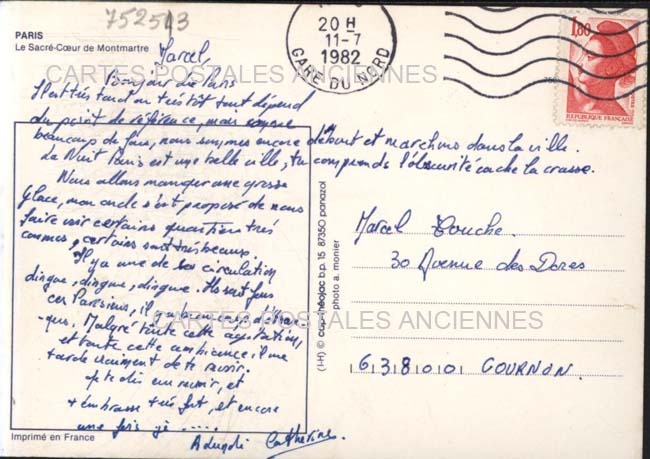 752513
PARIS
Le Sacré-Cœur de Montmartre
20 H
11-7
1982
GARE DU NORD
1,80
REPUBLIQUE FRANÇAISE
CARTES POSTALES ANCIENNES
Marcel,
Bonjour de Paris
Il est très tard ou très tôt tout dépend
du point de référence, mais comme
beaucoup de fous, nous sommes encore debout et marchons dans la ville.
La Nuit Paris est une belle ville, tu comprends l'obscurité cache la crasse.
Nous allons manger une grosse
glace, mon oncle s'est proposé de nous
faire voir certains quartiers très
connus, certains sont très beaux.
Il y a une de ces circulation
dingue, dingue, dingue. Ils sont fous
ces Parisiens, il
que. Malgré toute cette agitation,
et toute cette ambiance il me
tarde vraiment de te revoir.
je te dis au revoir, et
t'embrasse très fort, et encore
une fois je .....
Catherine.
Marcel Touche
30 Avenue des Dores
63800 COURNON
(I-H) © cap-théojac b.p. 15 87350 panazol
photo a. monier
CARTES POSTALES ANCIENNES
Imprimé en France